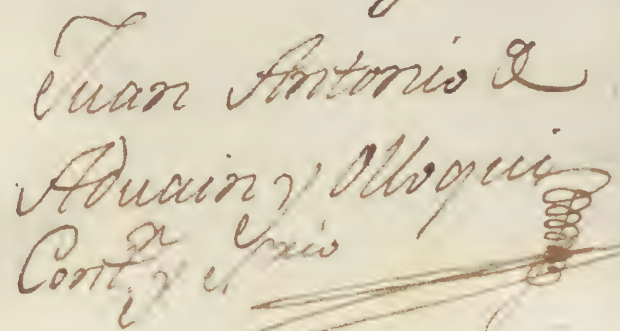 Juan Antonio de
Aduain y Olloqui
Cont.r y s.rio